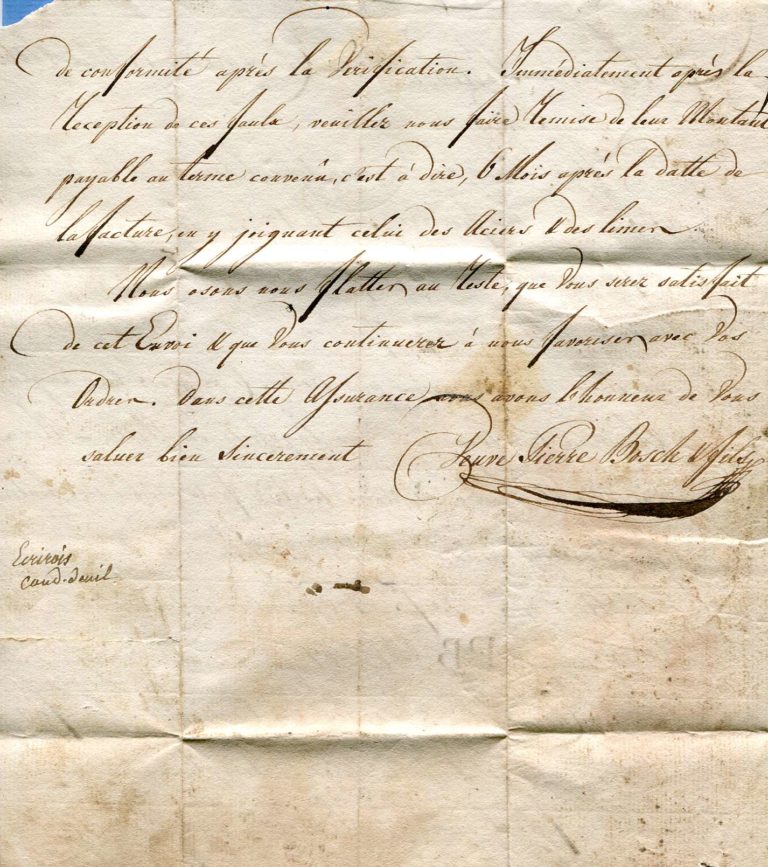 de conformité après la Vérification. Immédiatement après la
Réception de ces faulx, veuillez nous faire remise de leur Montant
payable au terme convenû, c'est à dire, 6 Mois après la datte de
la facture, en y joignant celui des Aciers & des limes.
Nous osons nous flatter au reste, que Vous serez satisfait
de cet Envoi & que Vous continuerez à nous favoriser avec Vos
Ordres. Dans cette Assurance nous avons l'honneur de Vous
saluer bien sincerement Veuve Pierre Bosch & fils